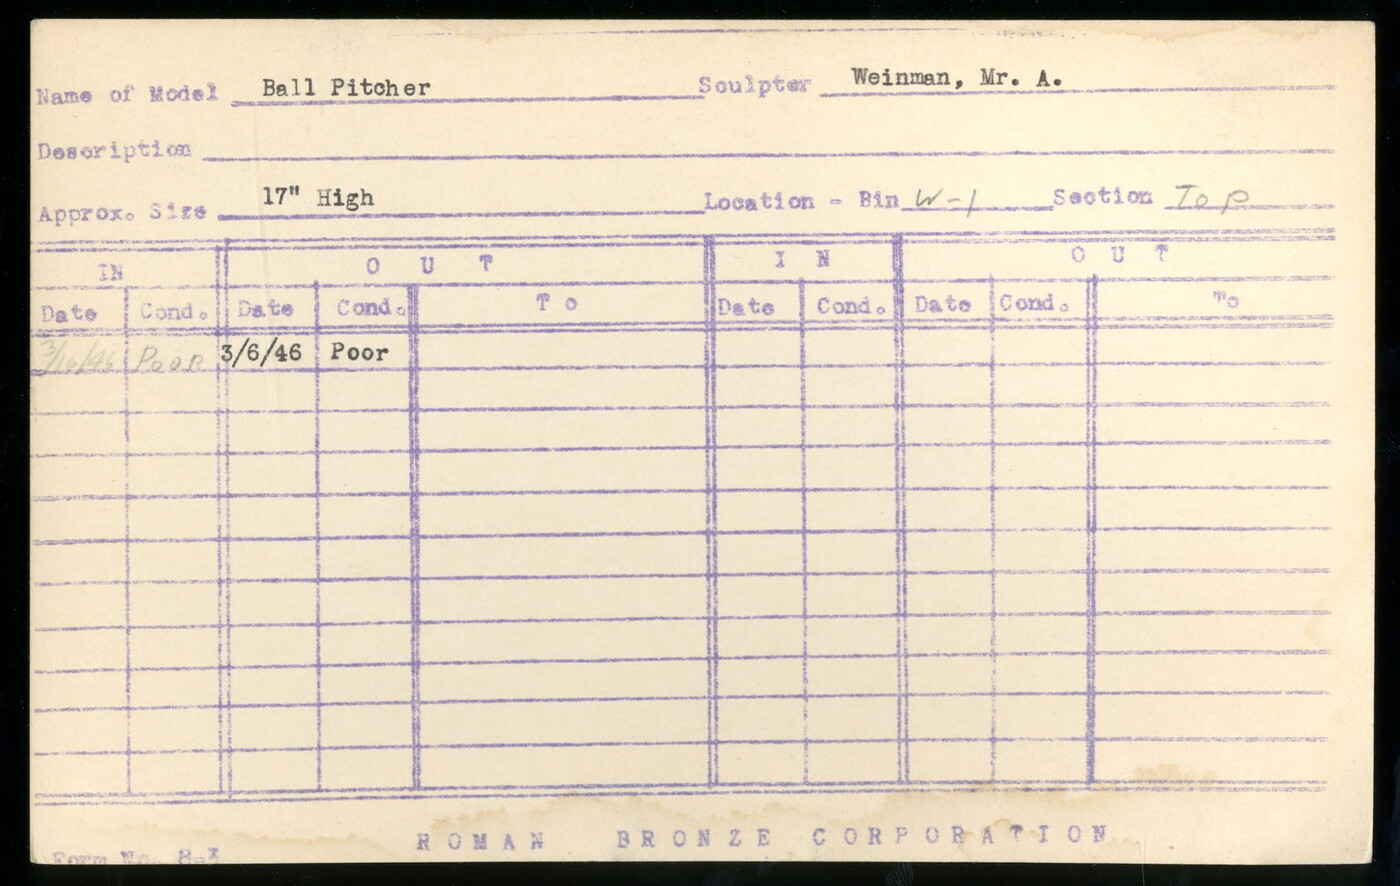 Name of Model Ball Pitcher Sculptor Weinman, Mr. A.
Description
Approx. Size 17" High Location - Bin W-1 Section Top
IN OUT IN OUT
Date Cond. Date Cond. To Date Cond. Date Cond. To
3/16/46 Poor 3/6/46 Poor
ROMAN BRONZE CORPORATION
Form No. 8-3